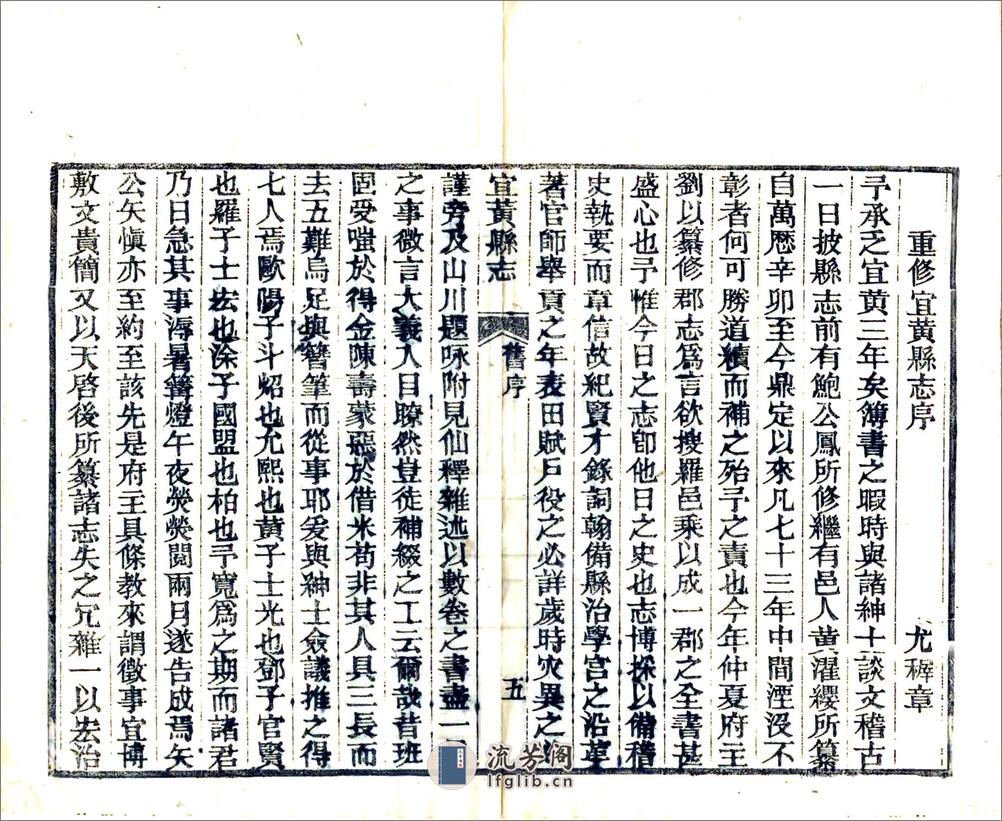 重修宜黃縣志序 尤稺章
予承乏宜黃三年矣簿書之暇時與諸紳士談文稽古
一日披縣志前有鮑公鳳所修繼有邑人黃濯纓所纂
自萬歷辛卯至今鼎定以來凡七十三年中間湮沒不
彰者何可勝道續而補之殆予之責也今年仲夏府主
劉以纂修郡志爲言欲搜羅邑乘以成一郡之全書甚
盛心也予惟今日之志卽他日之史也志博採以備稽
史執要而章信故紀賢才錄詞翰備縣治學宮之沿革
著官師舉貢之年表田賦戶役之必詳歲時灾異之
宜黃縣志 舊序 五
謹旁及山川題咏附見仙釋雜述以數卷之書盡一
之事微言大義入目瞭然豈徒補綴之工云爾哉昔班
固受嗤於得金陳壽蒙惡於借米苟非其人具三長而
去五難烏足與簪筆而從事耶爰與紳士僉議推之得
七人焉歐陽子斗炤也允熙也黃子士光也鄧子官賢
也羅子士宏也涂子國盟也柏也予寬爲之期而諸君
乃日急其事溽暑篝燈午夜熒熒閱兩月遂告成焉矣
公矣愼亦至約至該先是府主具條教來謂徵事宜博
敷文貴簡又以天啓後所纂諸志失之冗雜一以去治
流芳阁
lfglib.cn